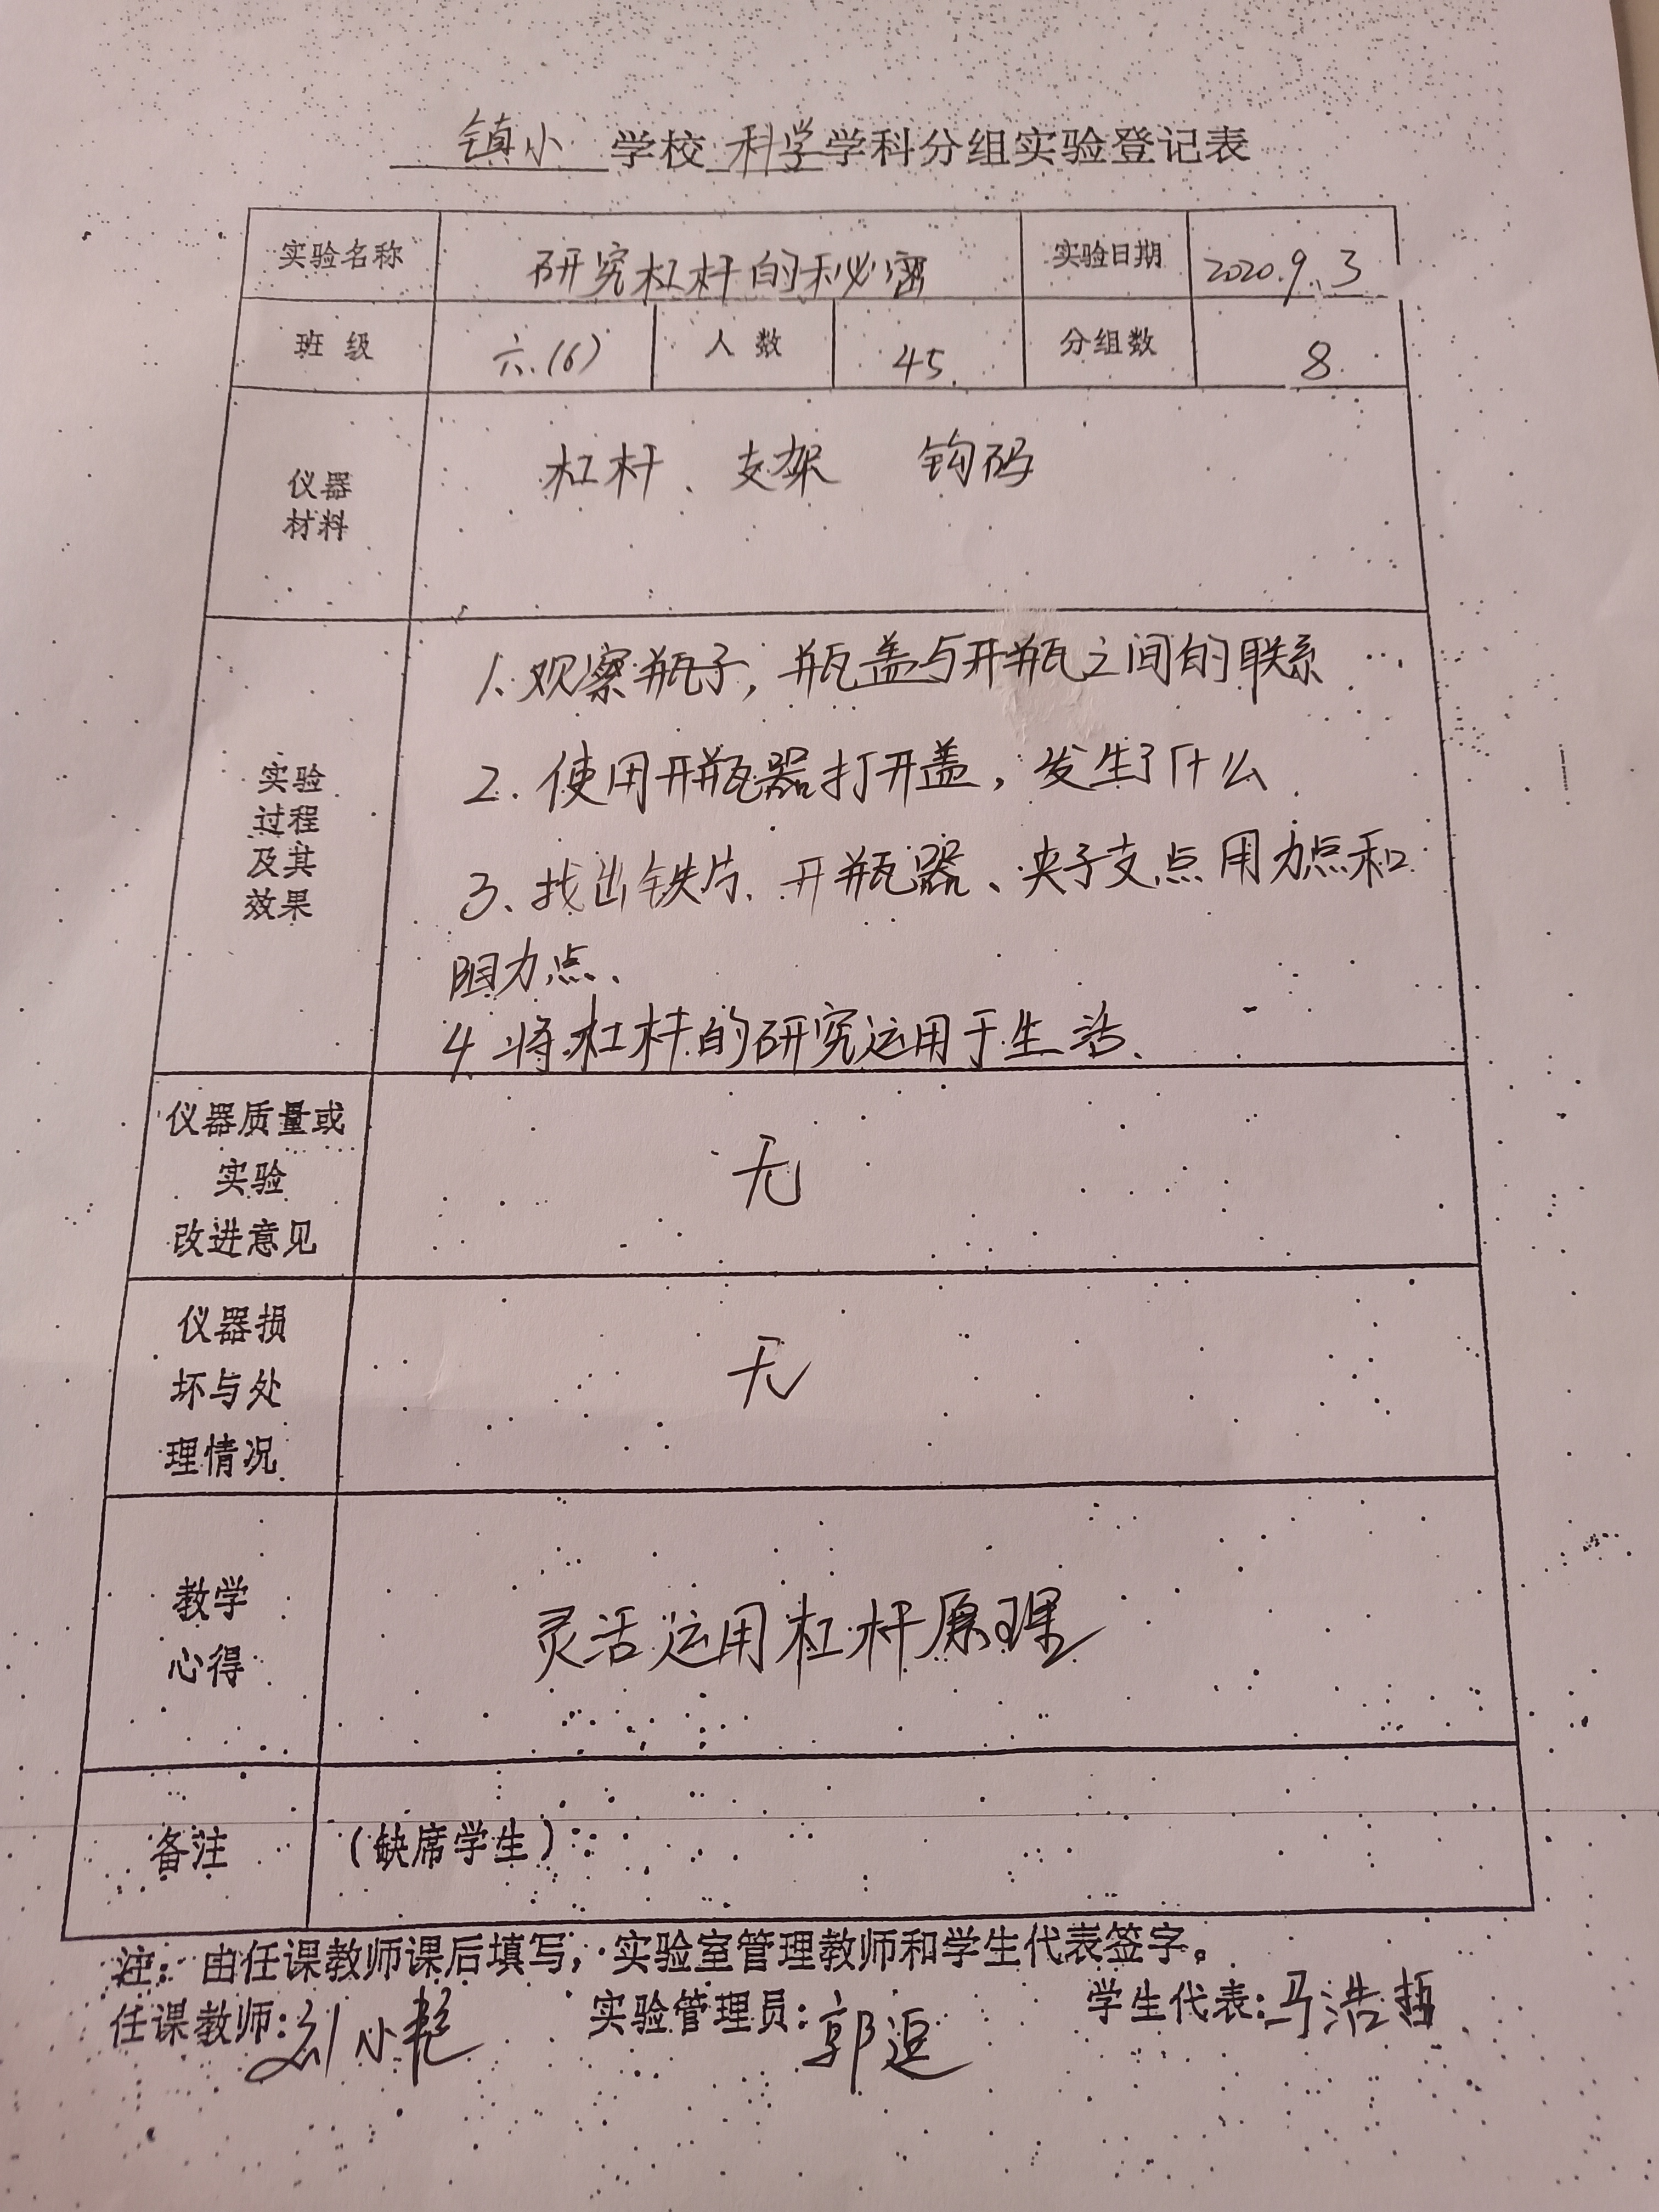 镇小 学校 科学 学科分组实验登记表
实验名称 研究杠杆的秘密 实验日期 2020.9.3
班 级 六.(6) 人 数 45 分组数 8
仪器
材料
杠杆、支架 钩码
实验
过程
及其
效果
1.观察瓶子,瓶盖与开瓶之间的联系
2.使用开瓶器打开盖,发生了什么
3、找出铁片、开瓶器、夹子支点用力点和
阻力点、
4.将杠杆的研究运用于生活、
仪器质量或
实验
改进意见
无
仪器损
坏与处
理情况
无
教学
心得
灵活运用杠杆原理
备注 (缺席学生):
注:由任课教师课后填写,实验室管理教师和学生代表签字。
任课教师:刘小艳 实验管理员:郭 学生代表:马浩哲